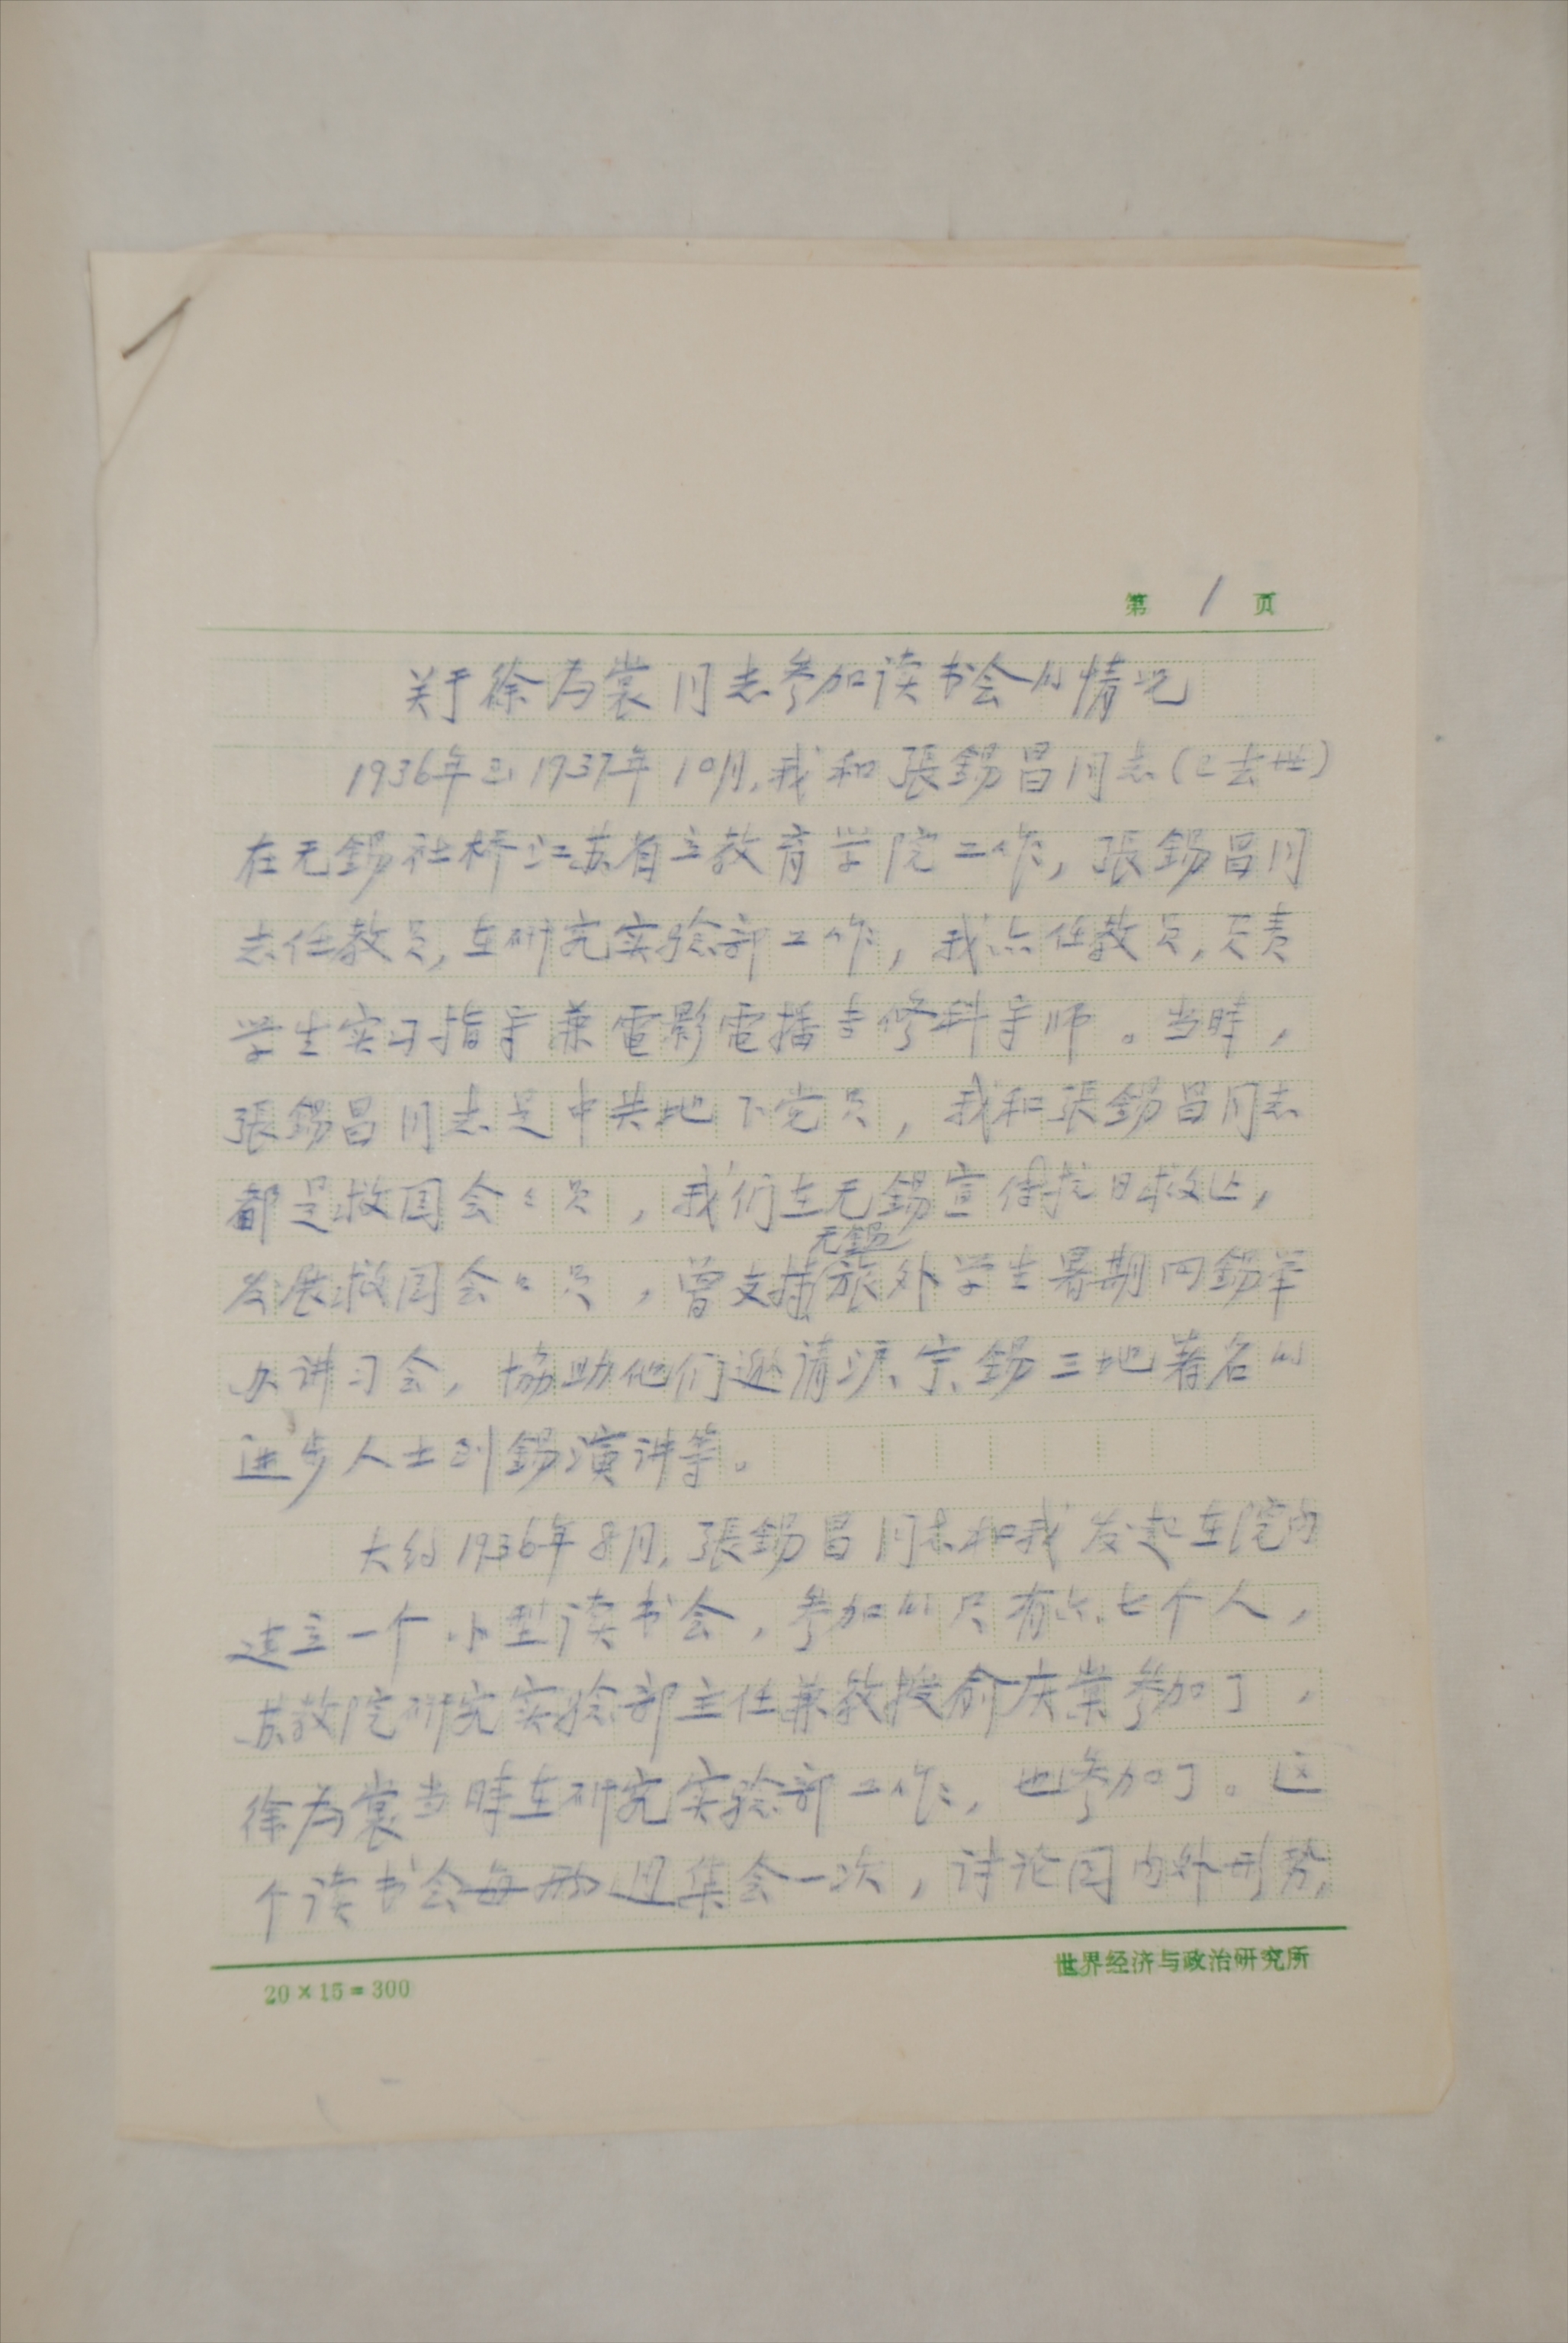 第 1 页
关于徐为裳同志参加读书会的情况
1936年到1937年10月,我和張錫昌同志(已去世)
在无錫社桥江苏省立教育学院工作,張錫昌同
志任教员,在研究实验部工作,我亦任教员,负责
学生实习指导兼電影電播专修科导师。当時,
張錫昌同志是中共地下党员,我和張錫昌同志
都是救国会会员,我们在无錫宣传抗日救亡,
无錫
发展救国会会员,曾支持旅外学生暑期回錫举
办讲习会,協助他们邀请沪、宁、錫三地著名的
进步人士到錫演讲等。
大约1936年8月,張錫昌同志和我发起在院内
建立一个小型读书会,参加的只有六、七个人,
苏教院研究实验部主任兼教授俞庆棠参加了,
徐为裳当時在研究实验部工作,也参加了。这
个读书会每两週集会一次,讨论国内外形势,
20×15=300
世界经济与政治研究所